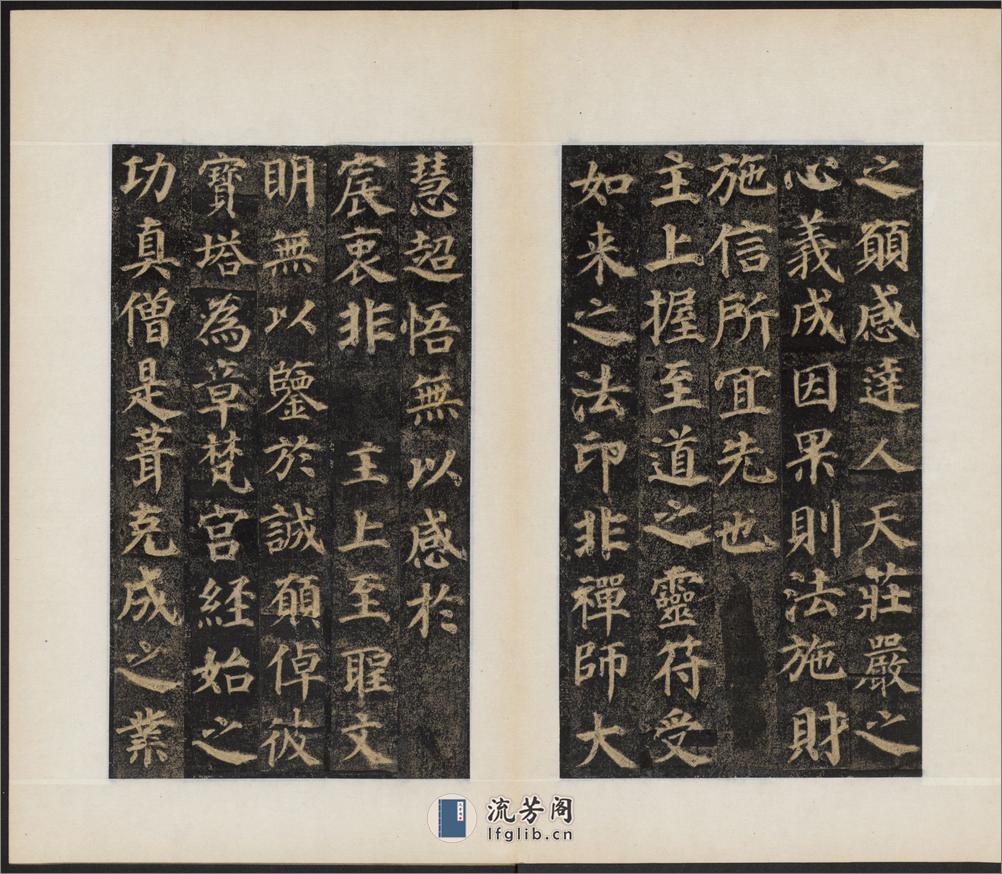 之願感達人天莊嚴之
心義成因果則法施財
施信所冝先也
主上握至道之靈符受
如来之法印非禪師大
慧超悟無以感於
宸衷非主上至聖文
明無以鑒於誠願倬彼
寶塔為章梵宮經始之
功真僧是葺克成之業
流芳阁
lfglib.cn